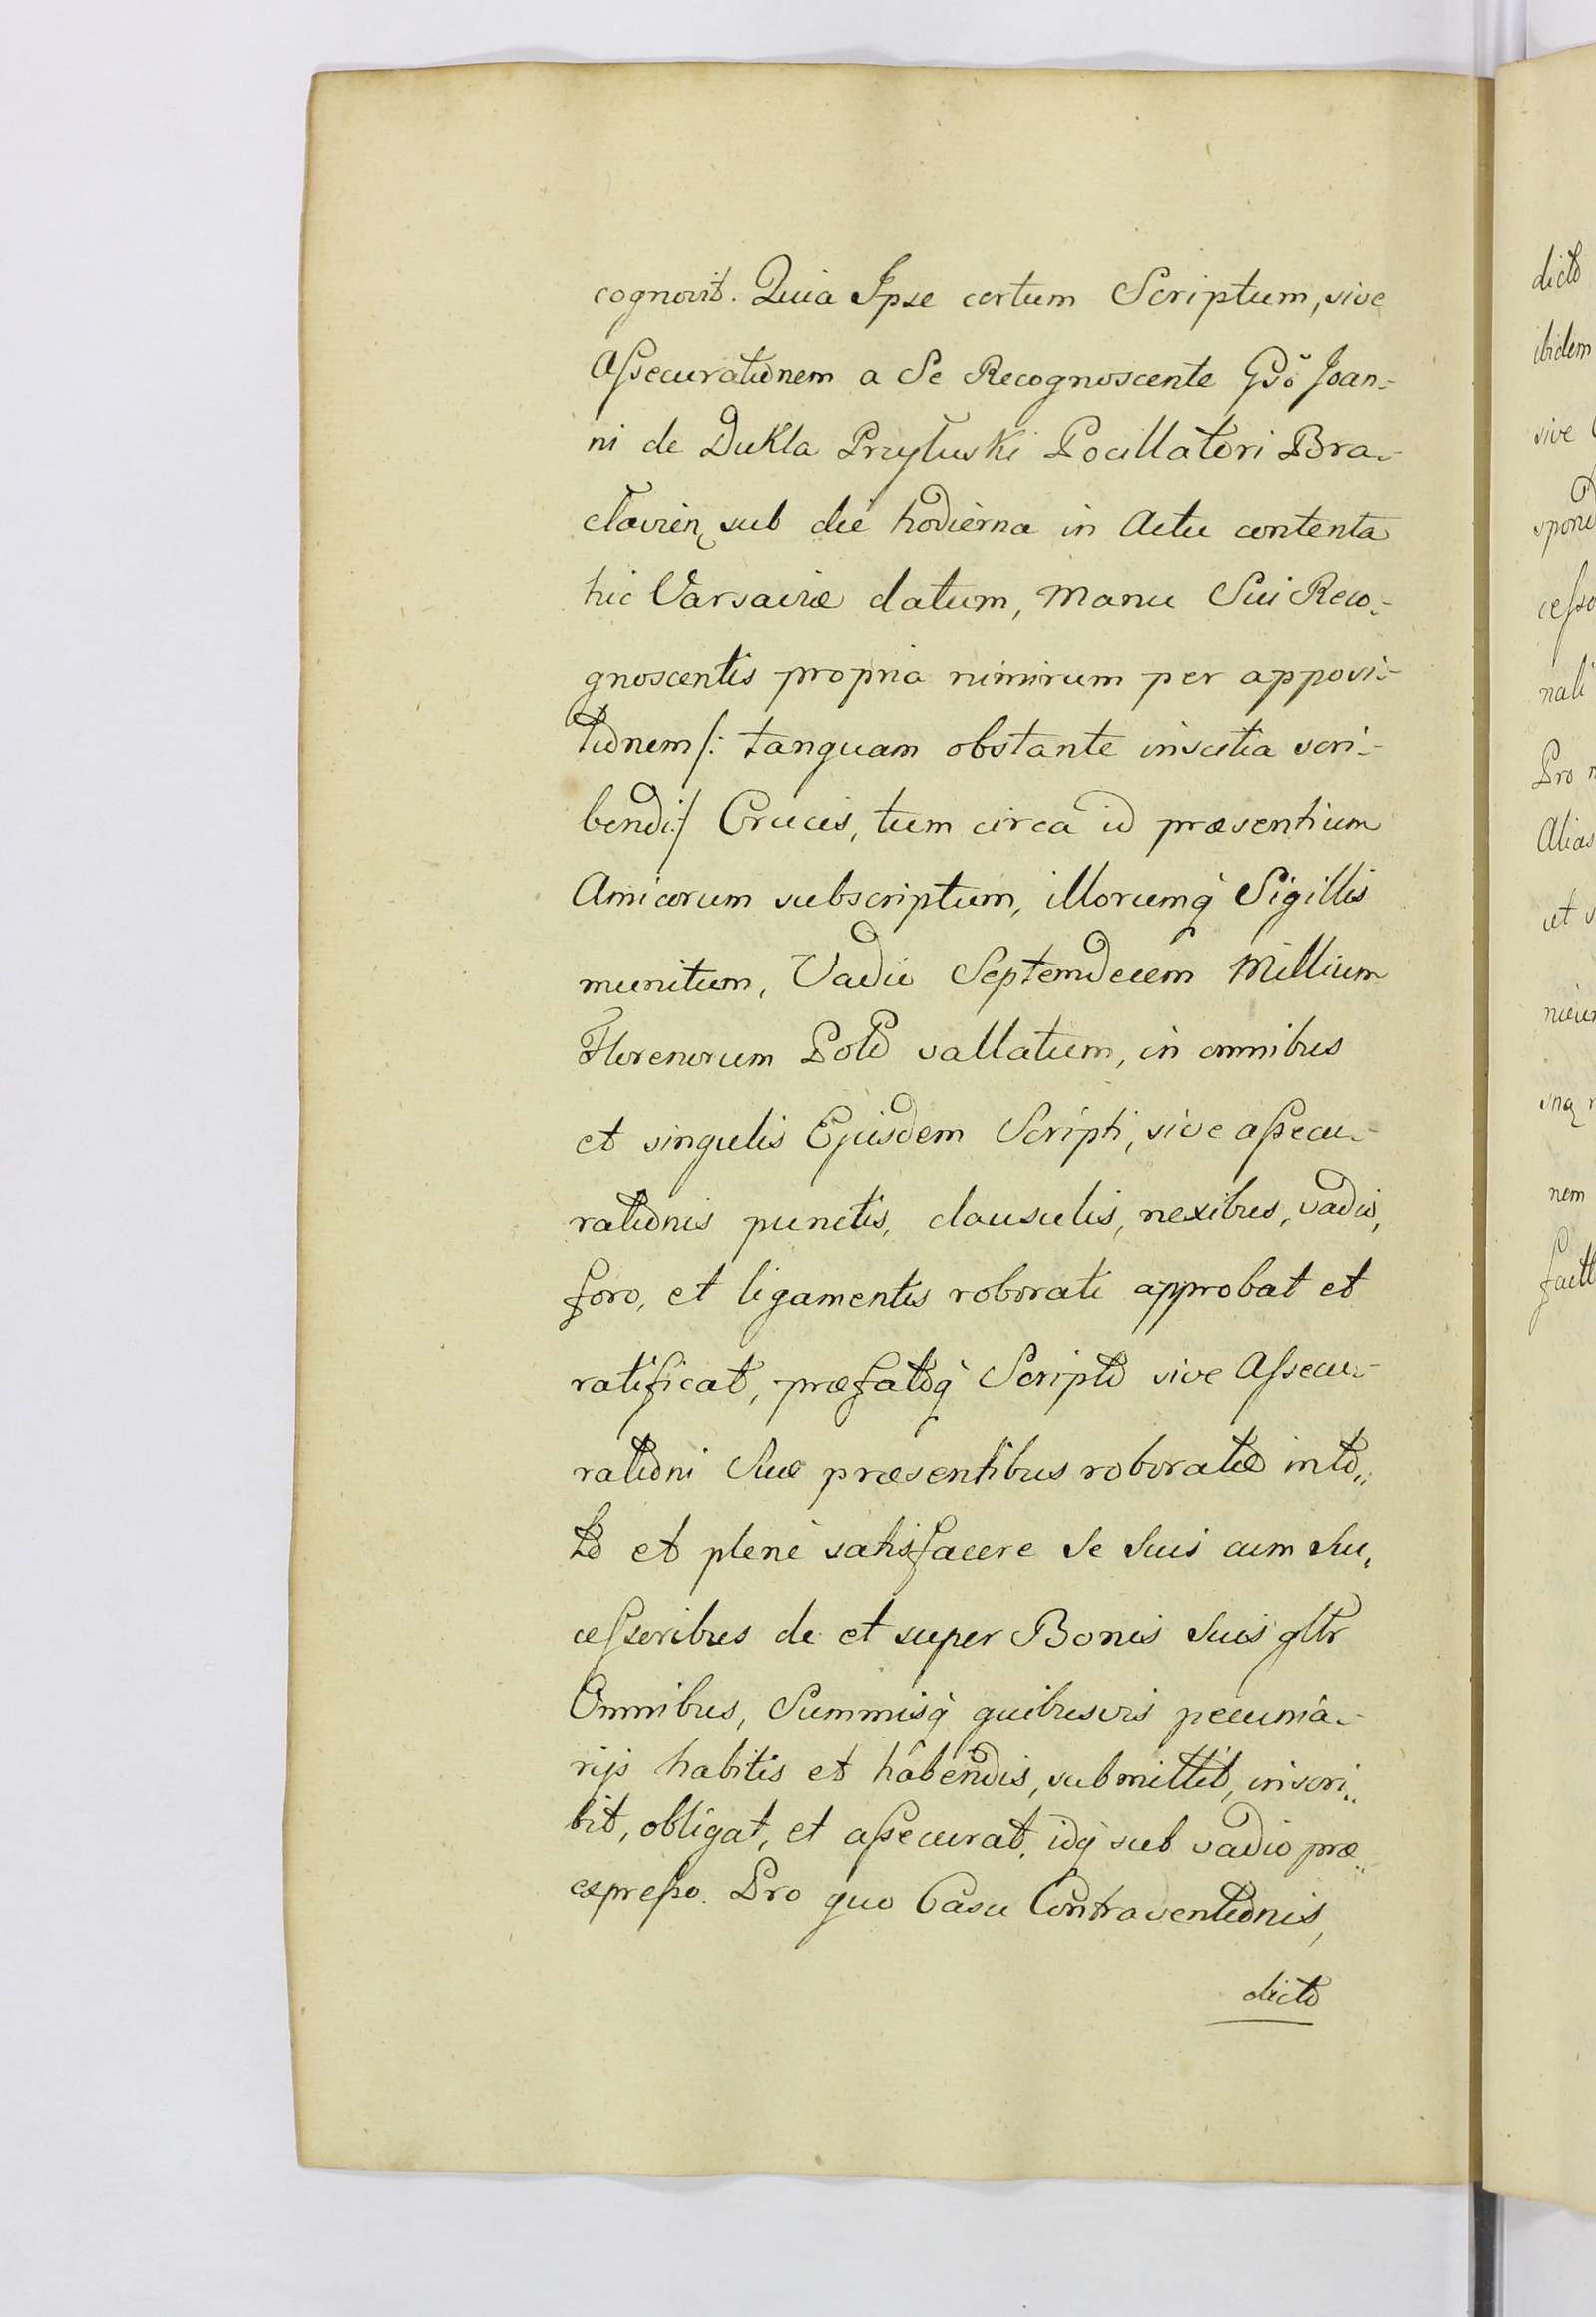 cognovit. Quia Ipse certum Scriptum, sive
Assecurationem a Se Recognoscente Gsō Joan-
ni de Dukla Przyłuski Pocillatori Bra-
clavien sub die hodierna in Actu contenta
hic Varsaviæ datum, Manu Sui Reco-
gnoscentis propria nimirum per apposi-
tionem /: tanquam obstante inscitia scri-
bendi :/ Crucis, tum circa id præsentium
Amicorum subscriptum, illorumq̀ Sigillis
munitum, Vadio Septemdecem Millium
Florenorum Pold vallatum, in omnibus
et singulis Ejusdem Scripti, sive assecu-
rationis punctis, clausulis, nexibus, vadio,
foro, et ligamentis roborati approbat et
ratificat, præfatoq̀ Scripto sive Assecu-
rationi Suæ præsentibus roboratæ in to-
to et plenè satisfacere Se Suis cum Su-
cessoribus de et super Bonis Suis gltr
Omnibus, Summisq̀ quibusvis pecunia-
rijs habitis et habendis, submittit, inscri-
bit, obligat, et assecurat, idq̀ sub vadio præ
expresso. Pro quo Casu Contraventionis,
dicto
dicto
ibidem
sive
cesso
nali
Pro
Alias
et
nem